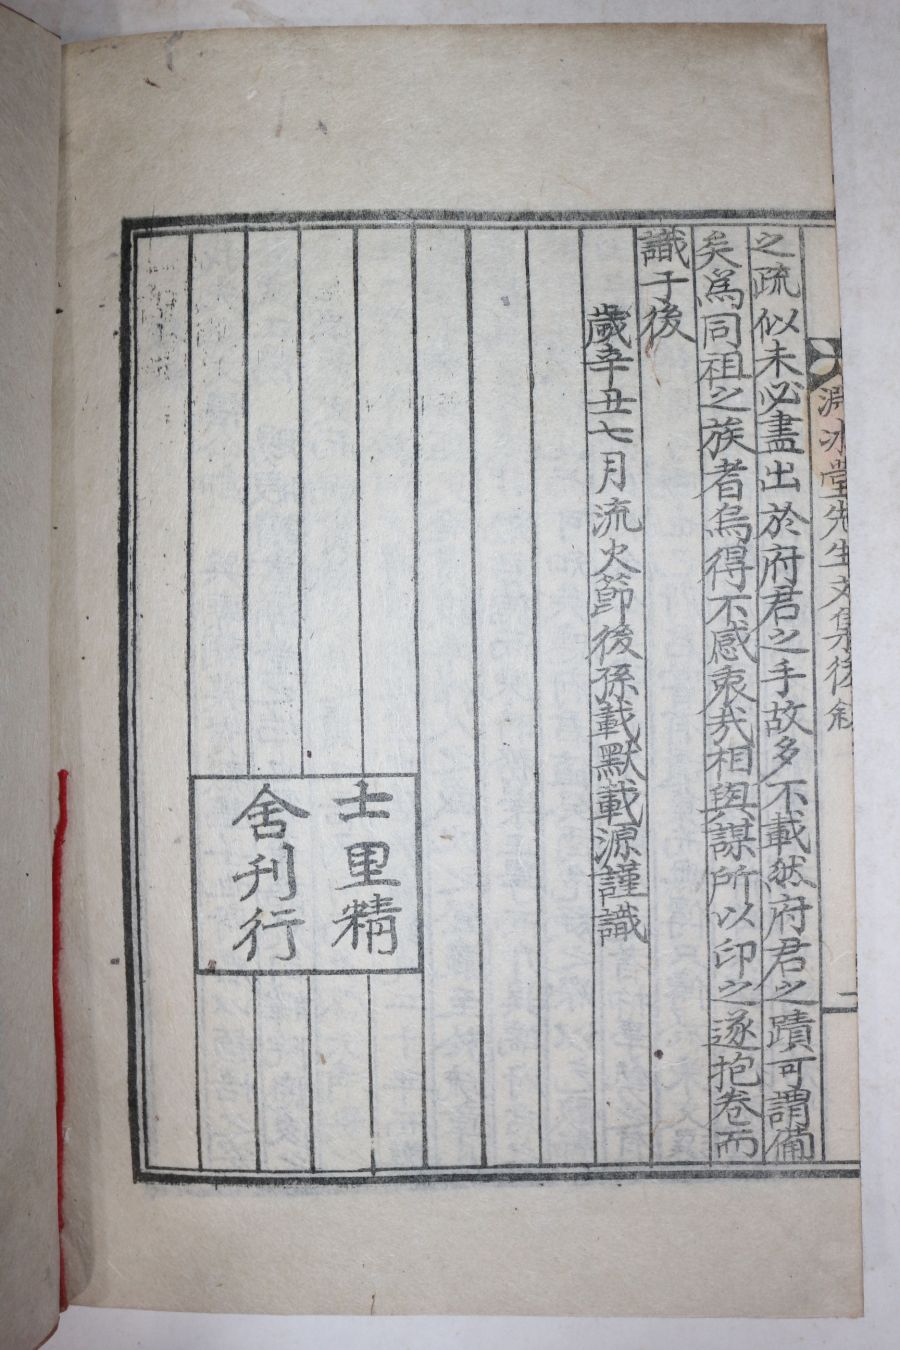 淵冰堂先生文集後叙
二
之疏似未必盡出於府君之手故多不載然府君之蹟可謂備
矣爲同祖之族者烏得不感衷哉相與謀所以印之遂抱卷而
識于後
歲辛丑七月流火節後孫載默載源謹識
士里精
舍刊行